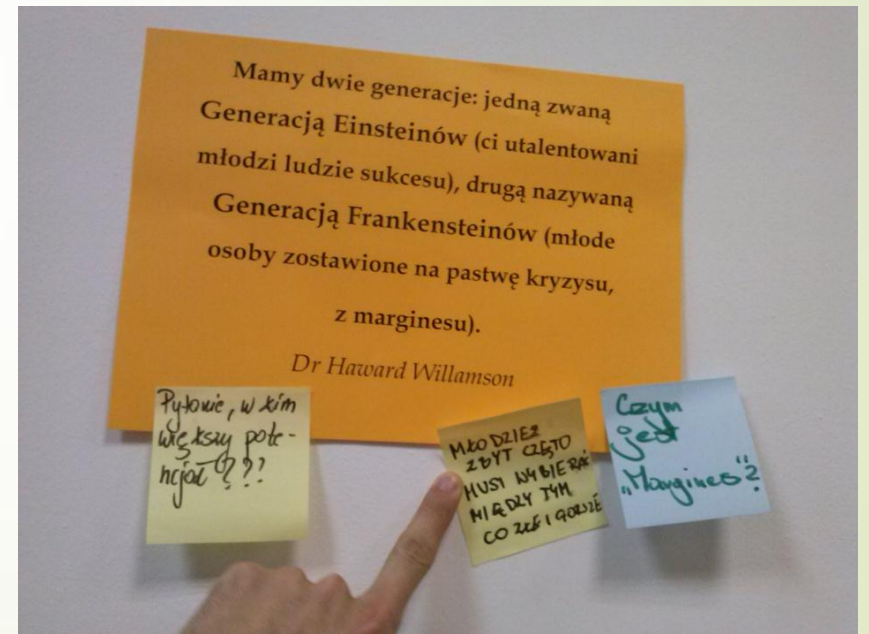 Mamy dwie generacje: jedną zwaną
Generacją Einsteinów (ci utalentowani
młodzi ludzie sukcesu), drugą nazywaną
Generacją Frankensteinów (młode
osoby zostawione na pastwę kryzysu,
z marginesu).
Dr Haward Willamson
Pytanie, w kim
większy pote-
ncjał???
MŁODZIEŻ
ZBYT CZĘTO
MUSI WYBIERAĆ
MIĘDZY TYM
CO ZŁE I GORSZE
Czym
jest
„Margines"?